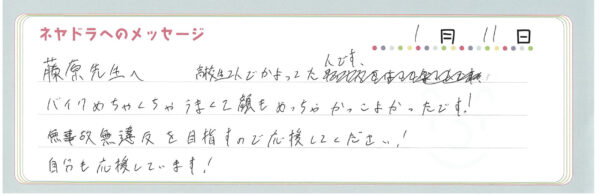 ネヤドラへのメッセージ
1月 11日
藤原先生へ 高校生コトでかよってた んです。
バイクめちゃくちゃうまくて顔もめっちゃかっこよかったです!
無事故無違反を目指すので応援してください!
自分も応援しています!